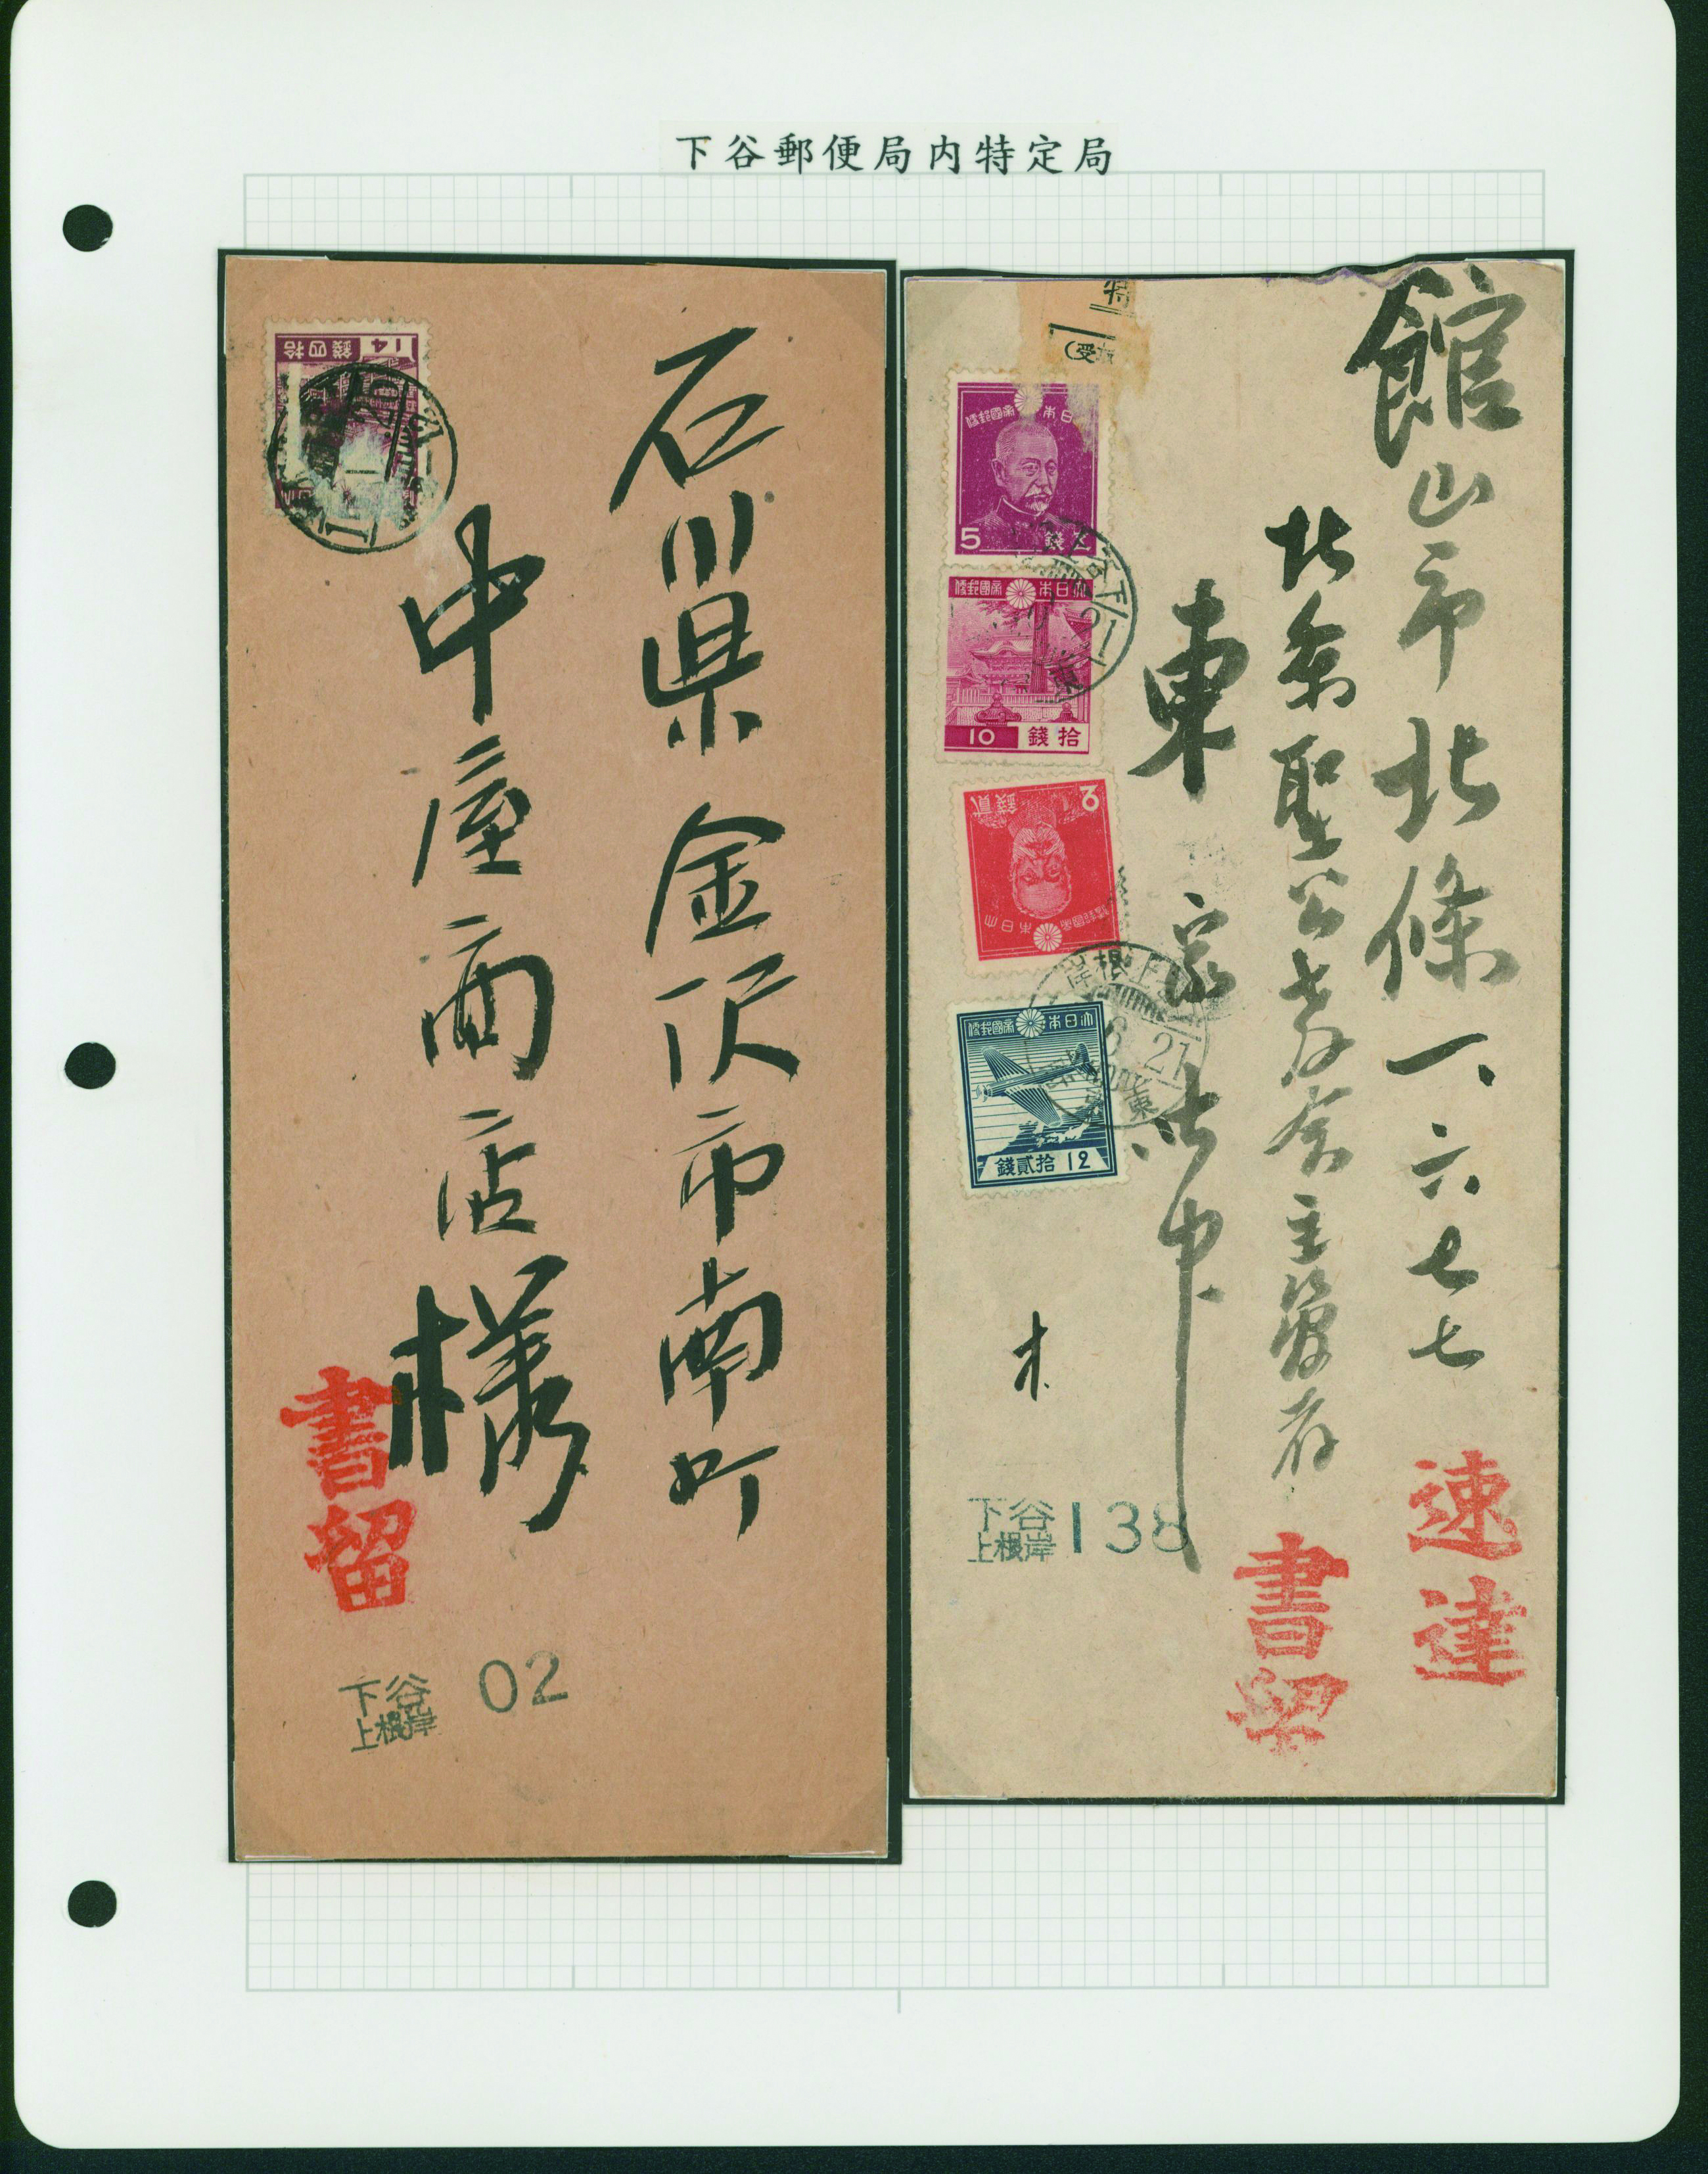 下谷郵便局内特定局
石川県金沢市南町
中屋商店様
書留
下谷
上根岸
02
14 錢四拾
館山市北條一、六七七
北条聖公教会主管者
東
速達
書留
特
(受
大日本帝國郵便
5 錢五
大日本帝國郵便
10 錢拾
大日本帝國郵便
2 錢貳
大日本帝國郵便
錢貳拾 12
下谷
21
東
上根岸
21
東
下谷
上根岸
138